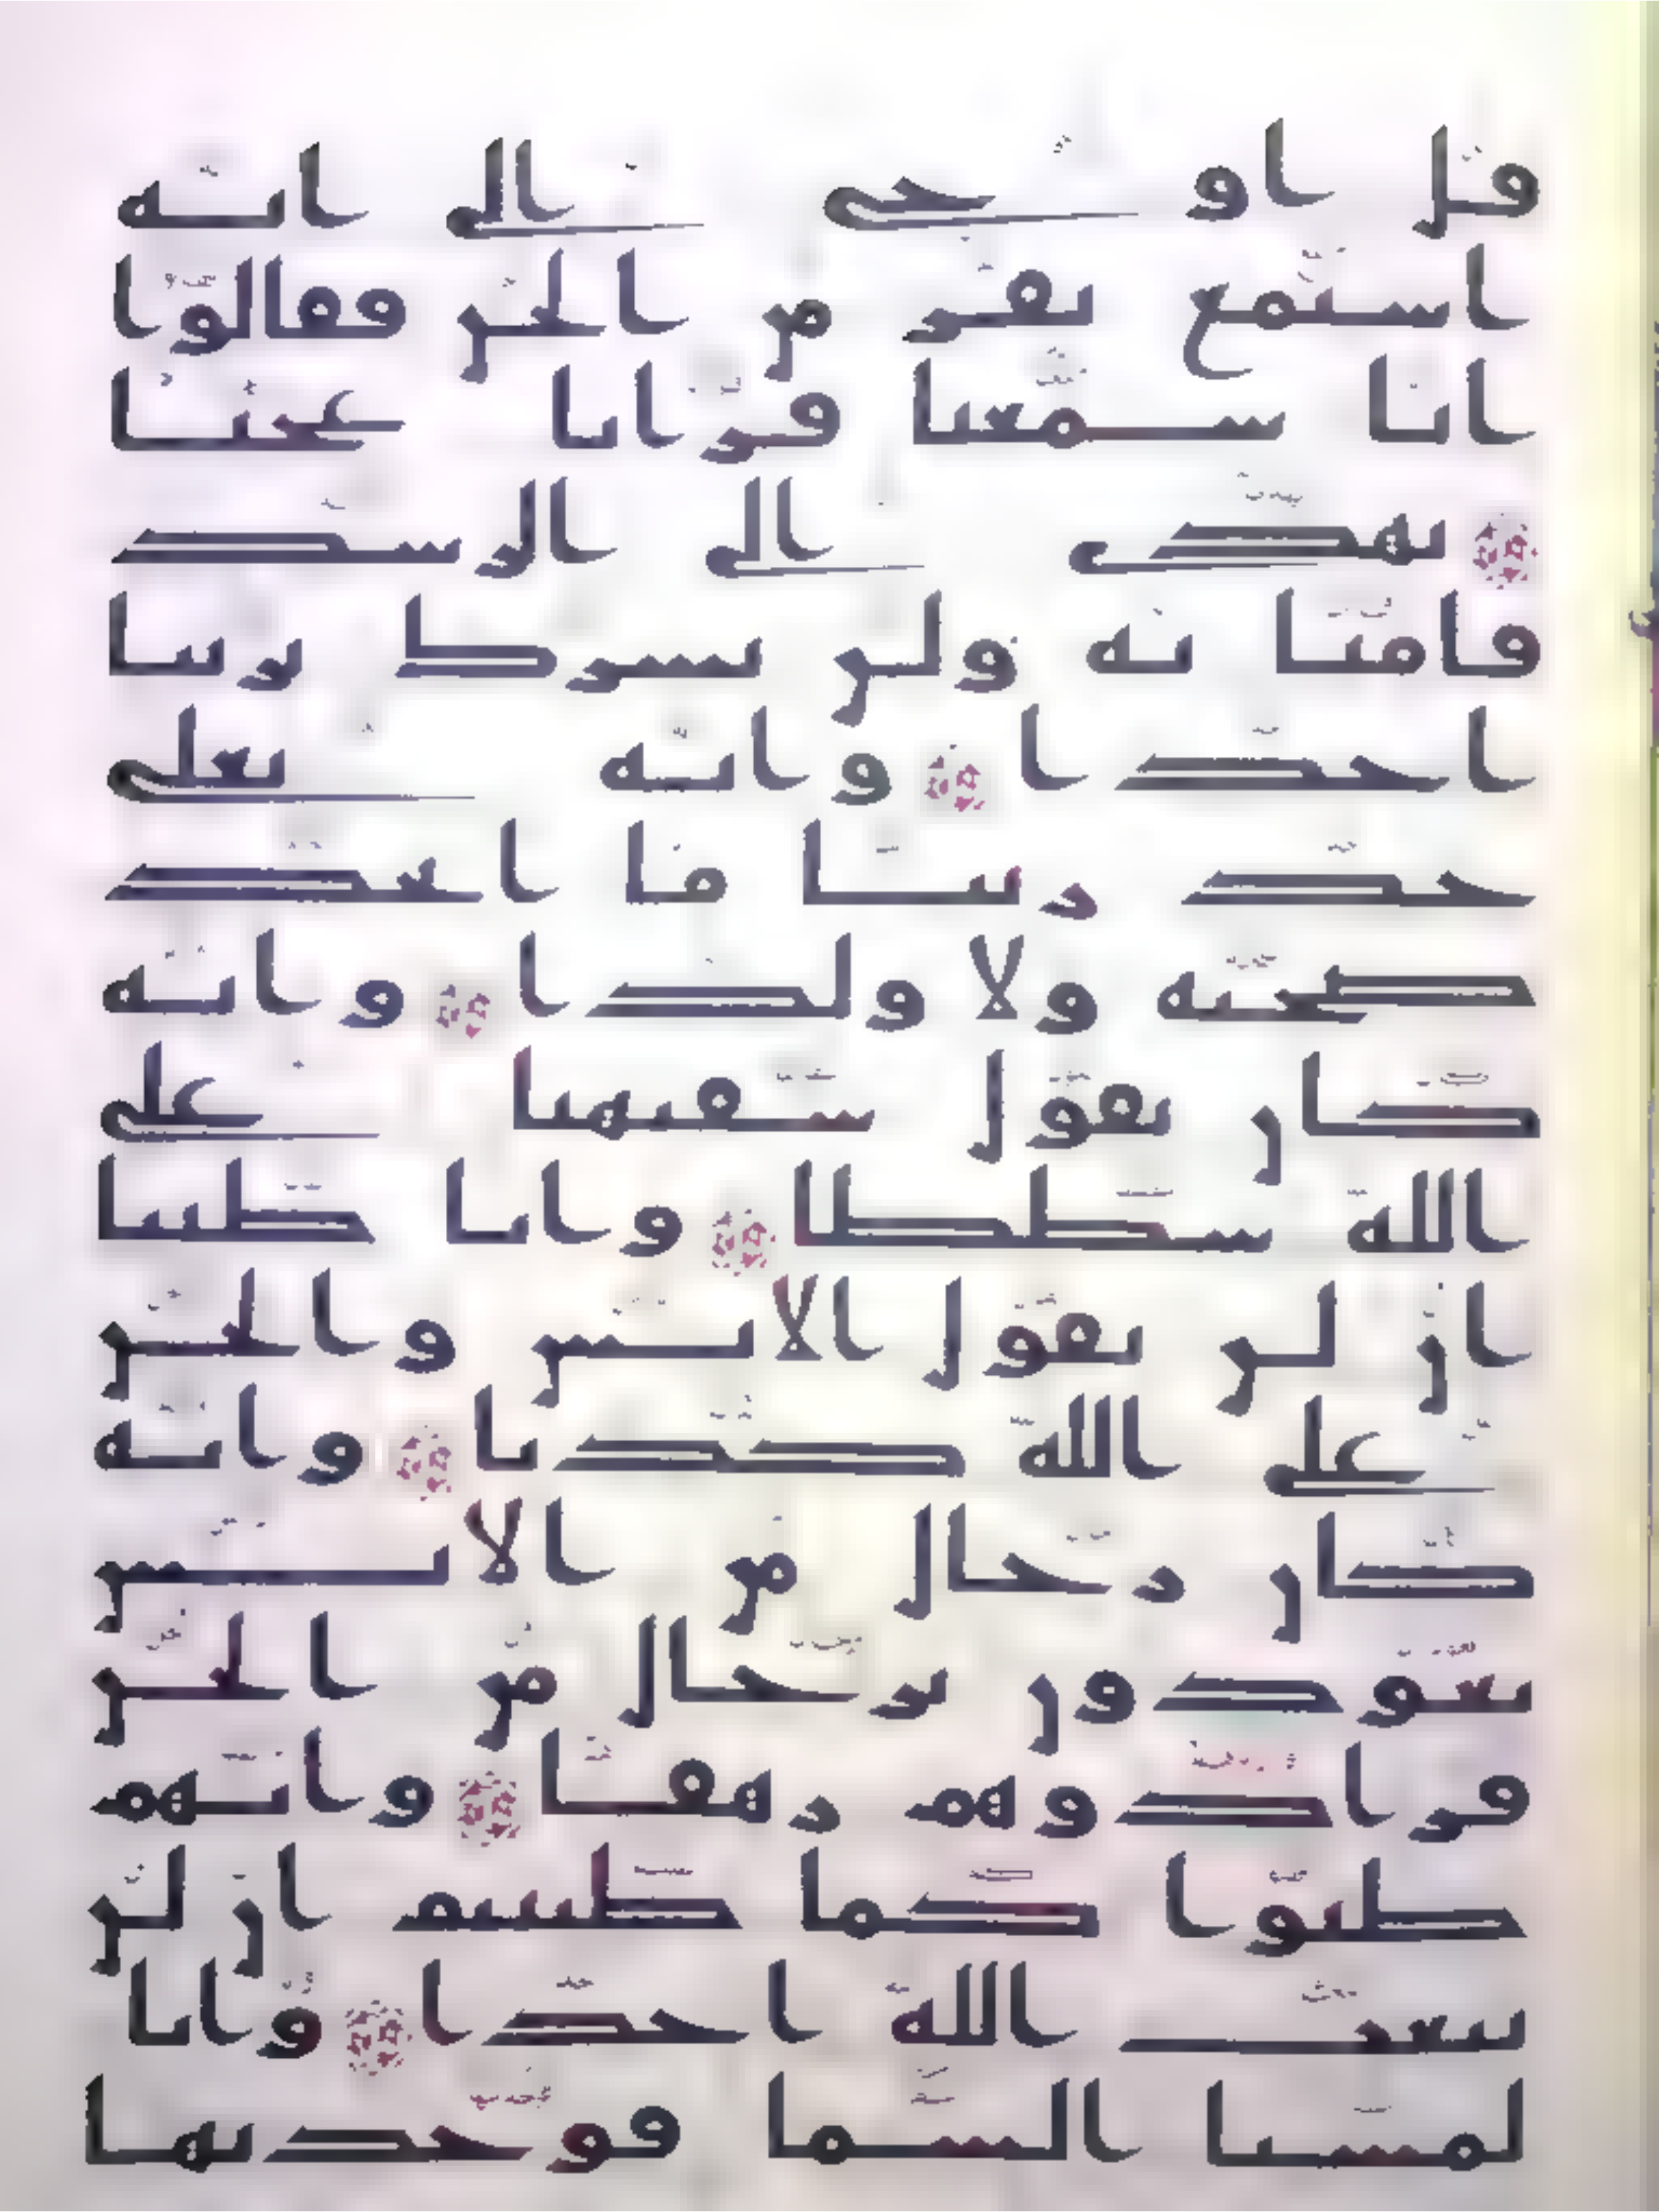 قل اوحي الي انه
استمع نفر من الجن فقالوا
انا سمعنا قرانا عجبا
يهدي الي الرشد
فامنا به ولن نشرك بربنا
احدا وانه تعلي
جد ربنا ما اتخذ
صحبة ولا ولدا وانه
كان يقول سفيهنا علي
الله شططا وانا ظننا
ان لن تقول الانس والجن
علي الله كذبا وانه
كان رجال من الانس
يعوذون برجال من الجن
فزادوهم رهقا وانهم
ظنوا كما ظننتم ان لن
يبعث الله احدا وانا
لمسنا السما فوجدنها